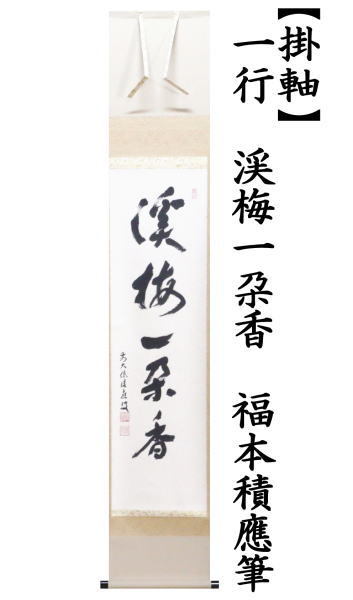 【掛軸】
一行 渓梅一朶香 福本積應筆
渓梅一朶香